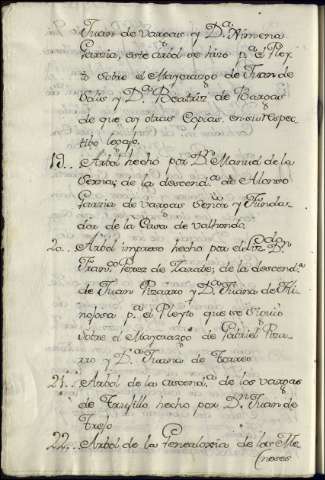 Juan de Vargas y D.ª Ximena
Garzia, este arbol se hizo p.ª el Pley-
to sobre el Mayorazgo de Juan de
Solis y D.ª Beatriz de Vargas
de que ay otras Copias en su respec-
tibo legajo.
19.. Arbol hecho por D.n Manuel de la
Cerna; de la descend.ª de Alonso
Garzia de Vargas Señor y Fundar-
dor de la Casa de Valhondo.
20.. Arbol impreso hecho por el Liz.do D.n
Fran.co Perez de Zarate; de la descend.ª
de Juan Pizarro y D.ª Juana de Hi-
nojosa p.ª el Pleyto que se siguio
sobre el Mayorazgo de Gabriel Piza-
rro y D.ª Juana de Torres
21.. Arbol de la ascend.ª de los Vargas
de Trujillo hecho por D.n Juan de
Trejo
22.. Arbol de la Genealoxia de los Me-
neses